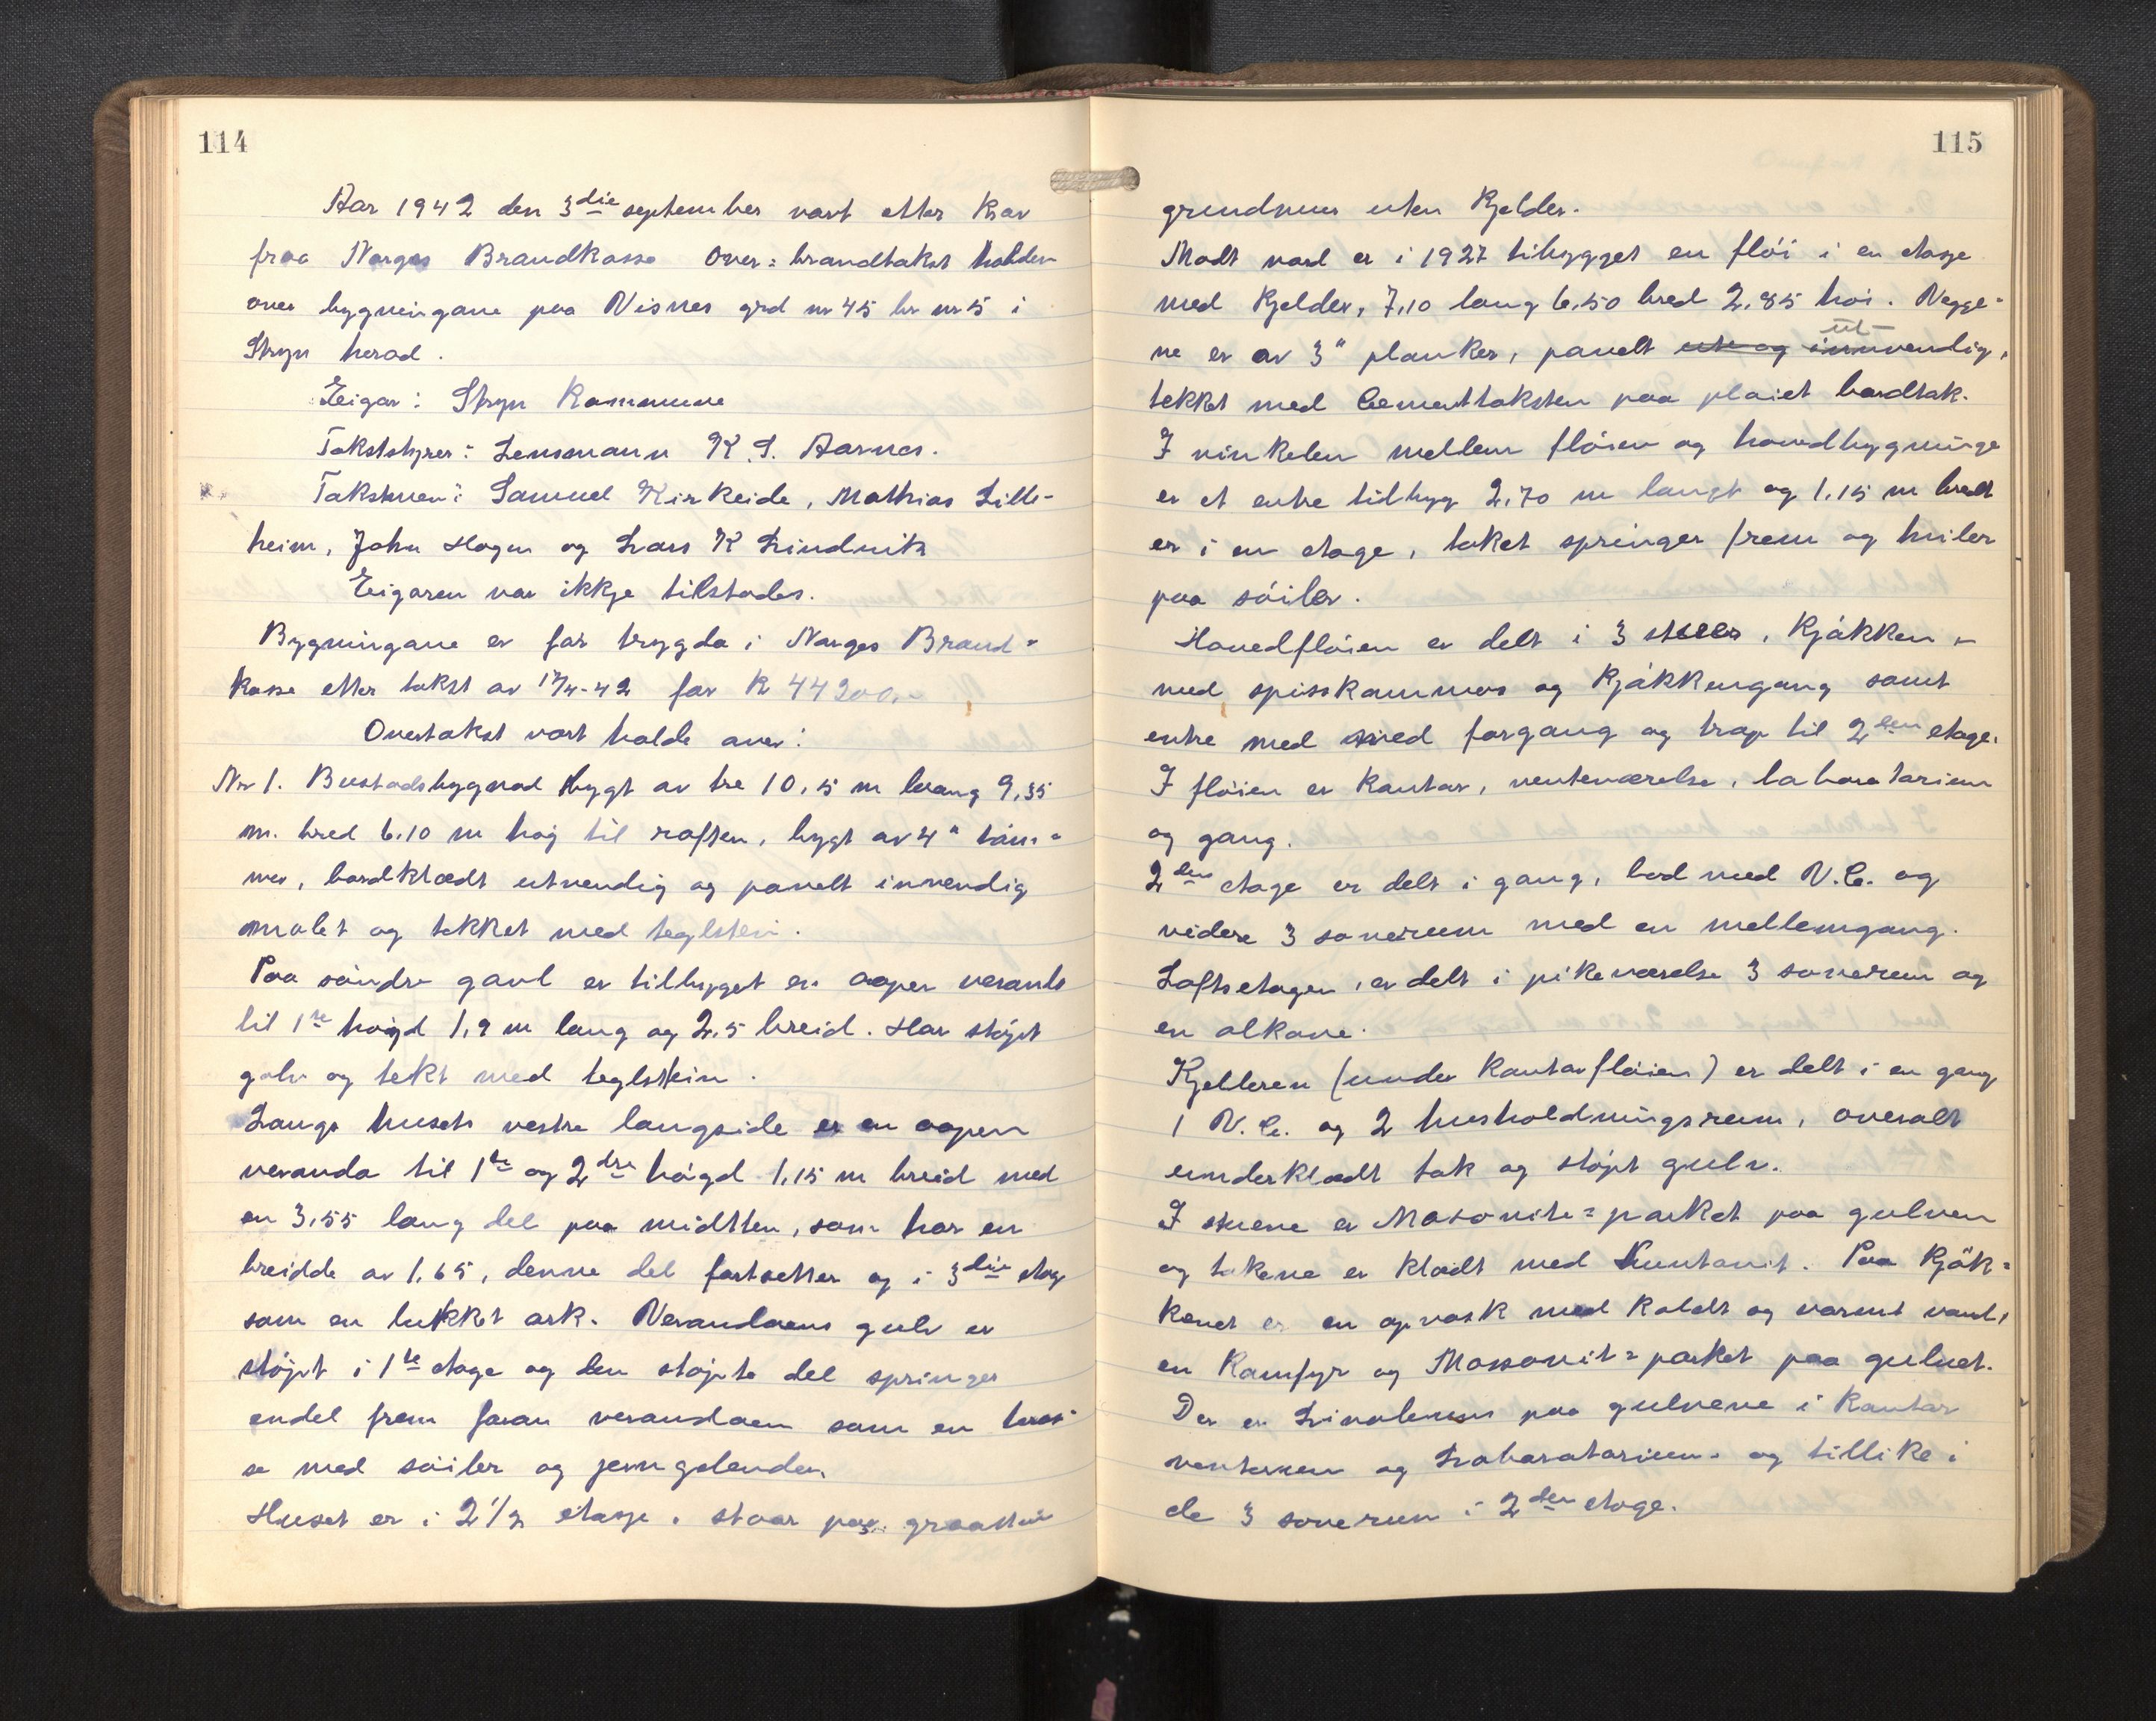 114
Aar 1942 den 3die september vart etter krav
fraa Norges Brandkasse over=brandtakst halden
over bygningane paa Visnes grd nr 45 br nr 5 i
Stryn herad.
Eigar: Stryn Kommune
Takststyrer: Lensmann K. S. Aarnes.
Takstmen: Samuel Kirkeide, Mathias Lille-
heim, John Hogen og Lars K Lindvik
Eigaren var ikkje tilstades.
Bygningane er før trygda i Norges Brand-
kasse etter takst av 17/4-42 for kr 44200,-
Overtakst vart holde over:
Nr 1. Bustadsbygnad bygt av tre 10,5 m lang 9,35
m. bred 6.10 m høg til raften, bygt av 4" tøm-
mer, bordklædt utvendig og panelt innvendig
malet og tekket med teglsten.
Paa søndre gavl er tilbygget en aapen veranda
til 1ste høgd 1,9 m lang og 2,5 breid. Har støpt
golv og tekt med teglstein.
Langs husets vestre langside er en aapen
veranda til 1ste og 2dre høgd 1,15 m breid med
en 3,55 lang del paa midtten, som har en
breidde av 1,65, denne del fortsetter og i 3die etage
som en lukket ark. Verandaens gulv er
støpt i 1ste etage og den støpte del springer
endel frem foran verandaen som en teras-
se med søiler og jerngelender.
Huset er i 2 1/2 etasje. staar paa graastein
115
grundmur uten kjelder.
Modt nord er i 1927 tibygget en fløi i en etasje
med kjelder, 7,10 lang 6.50 bred 2.85 høi. Vegge-
ne er av 3" planker, panelt ute og innvendig,
ut-
tekket med Cementtaksten paa pløiet bordtak.
I vinkelen mellem fløien og hovedbygninge
er et entre tilbygg 2,70 m langt og 1.15 m bredt
er i en etage, taket springer frem og hviler
paa søiler.
Hovedfløien er delt i 3 stuer, kjøkken
med spisskammer og kjøkkengang samt
entre med forgang og trap til 2den etage.
I fløien er kontor, venteværelse, laboratorium
og gang.
2den etage er delt i gang, bod med V.C. og
videre 3 soverum med en mellemgang.
Loftsetagen, er delt i pikeværelse 3 soverum og
en alkove.
Kjelleren (under kontorfløien) er delt i en gang
1 V.C. og 2 husholdningsrum, overalt
underklædt tak og støpt gulv.
I stuene er Masonite=parket paa gulven
og takene er klædt med Huntonit. Paa kjøk=
kenet er en opvask med kaldt og varmt vand,
en Kamfyr og Massonit=parket paa gulvet.
Der er Linoleum paa gulvene i kontor
venterum og Laboratorium og tillike i
de 3 soverum i 2den etage.